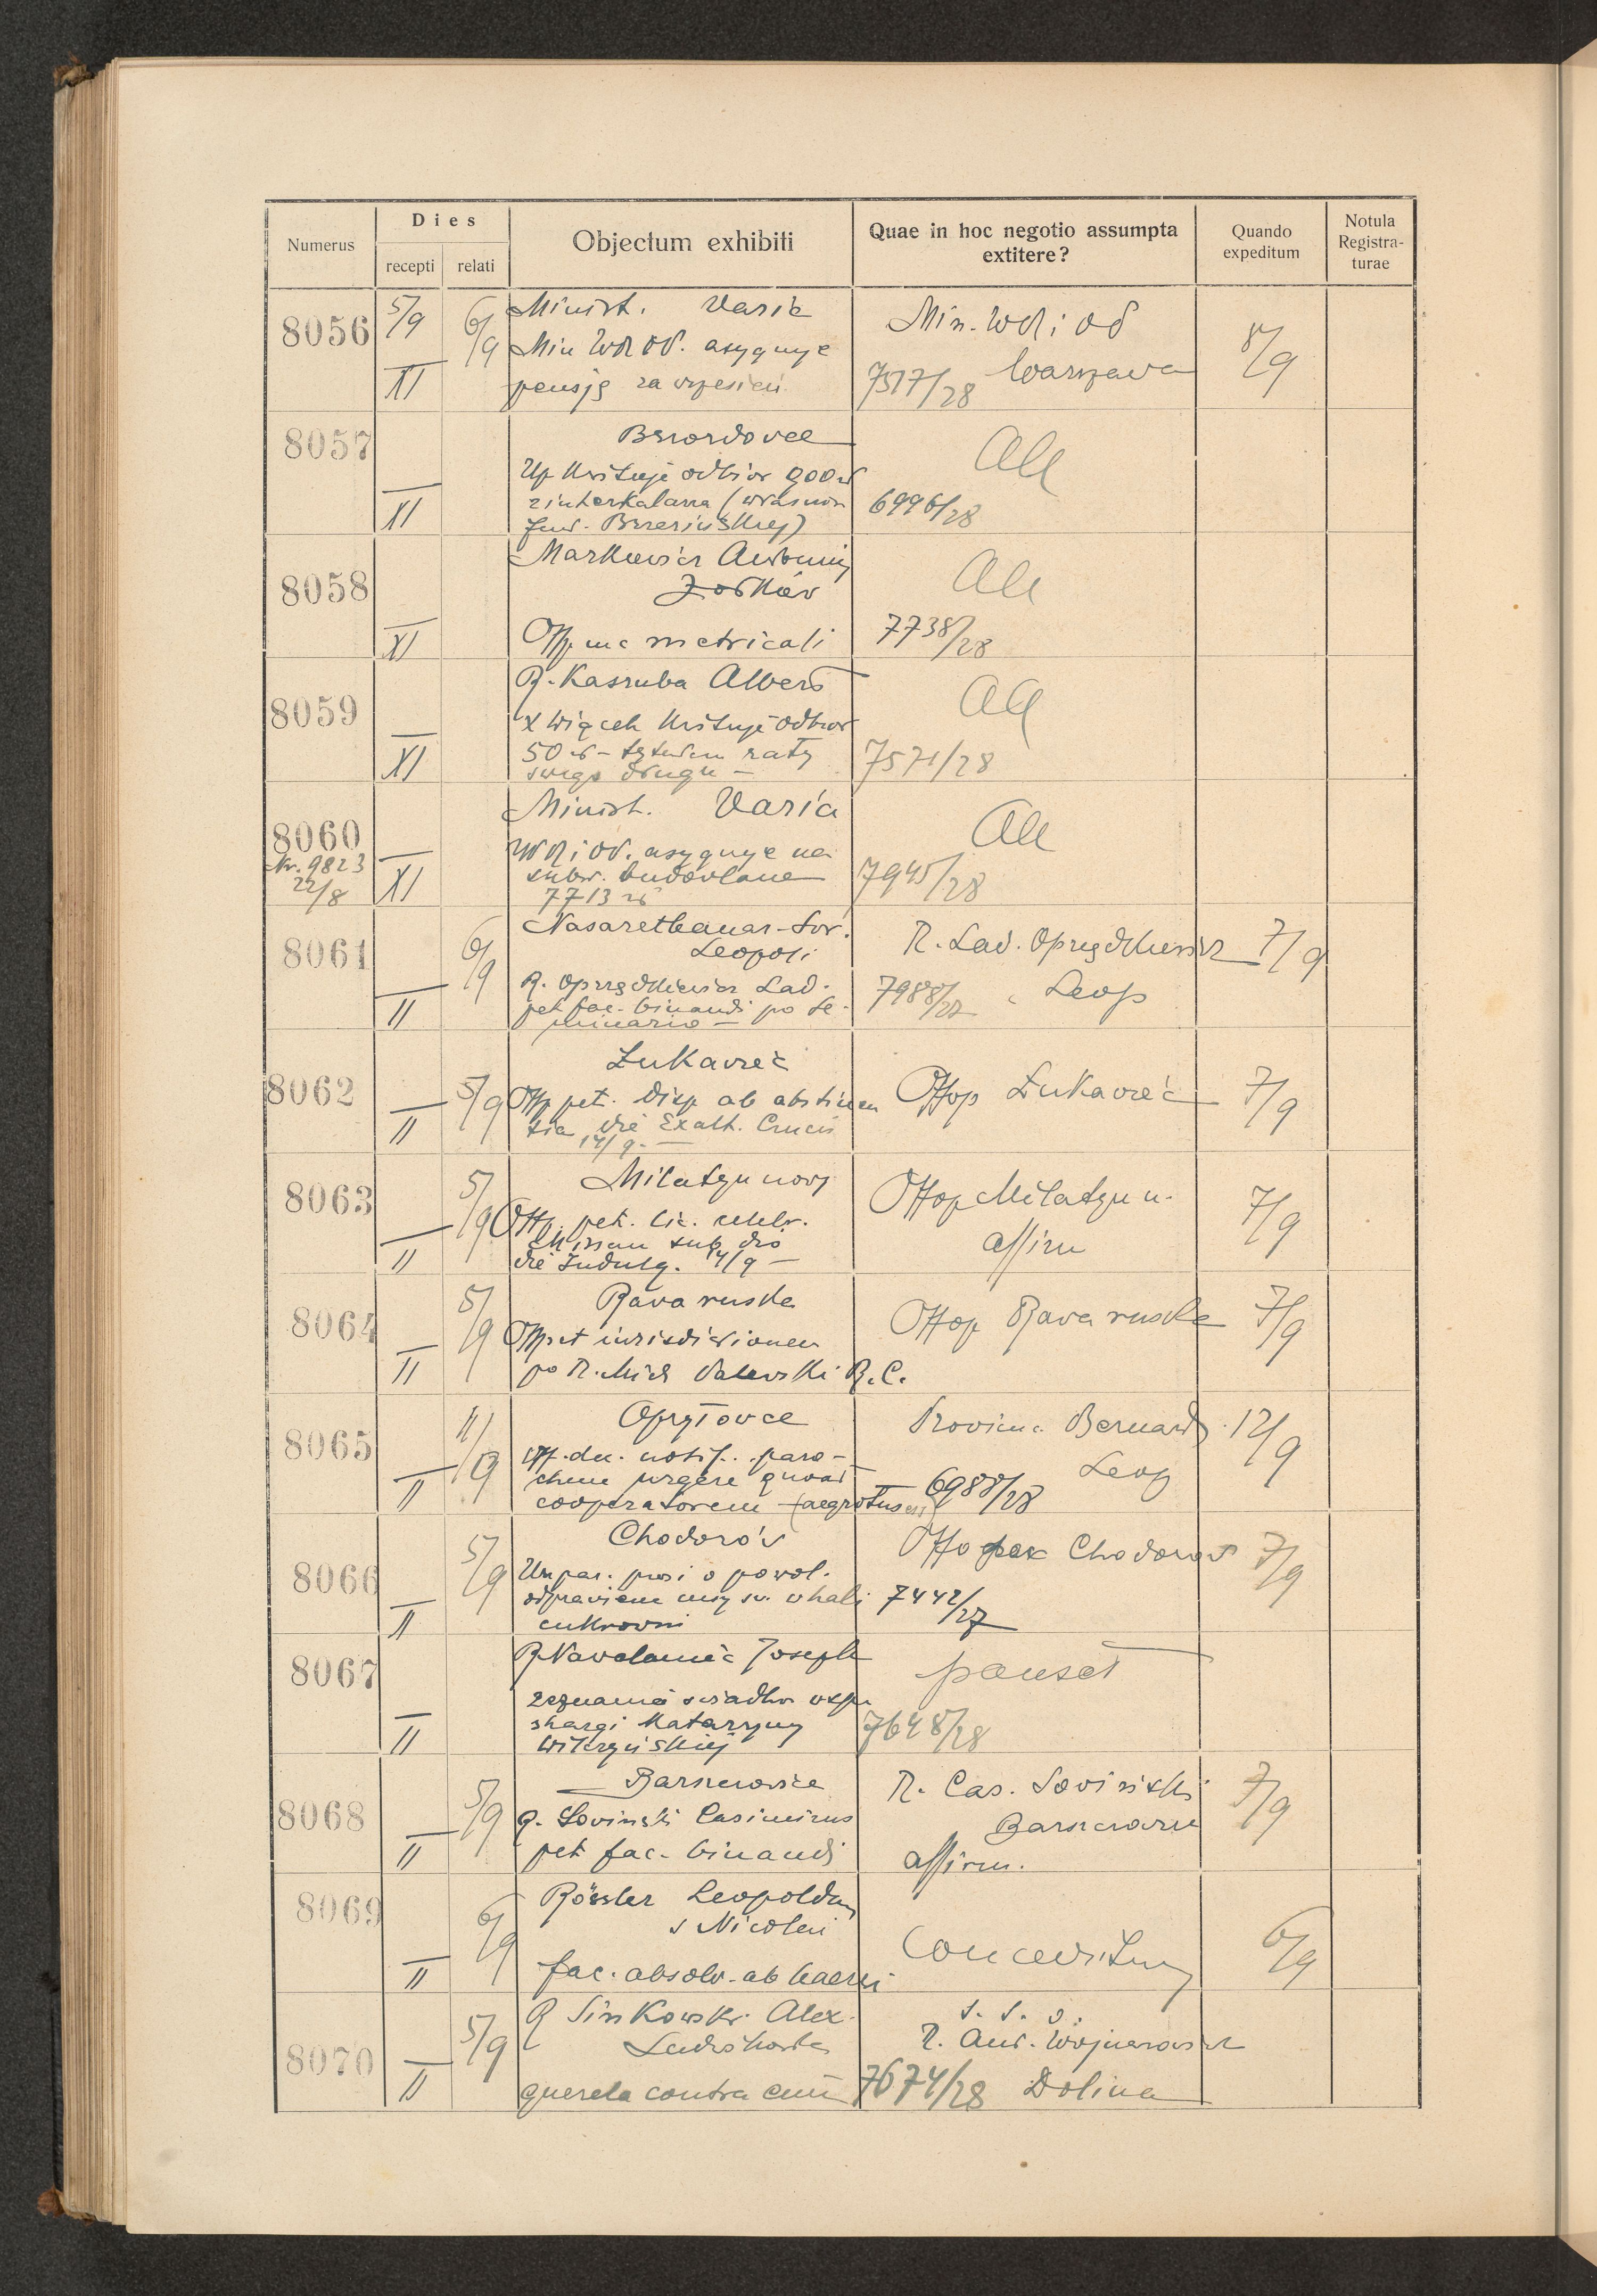 Numerus
Dies
recepti relati
Objectum exhibiti
Quae in hoc negotio assumpta
extitere?
Quando
expeditum
Notula
Registra-
turae
8056
5/9
XI
6/9
Minist. Varia
Min WR OP. asygnuje
pensję za wrzesień
Min. WR i OP
Warszawa
7517/28
8/9
8057
XI
odbior 900 zł
z interkalara
All
6996/28
8058
XI
Markiewicz Antoni
Żółkiew
Offm metricali
All
7738/28
8059
XI
R. Kaszuba Albert
X Więcek kwituje odbior
50 zł - tytułem raty
swego długu -
All
7571/28
8060
Nr. 9823
22/8
XI
Minist. Varia
WR i OP. asygnuje na
subw. budowlane
7713 zł
All
7945/28
8061
II
6/9
Nazarethanar. Sor.
Leopoli
R. Lad.
pet fac. binandi po Se-
minario -
R. Lad.
7988/27 Leop
7/9
8062
II
5/9
Łukawiec
Off pet. disp ab abstinen
tia die Exalt. Crucis
14/9. -
Offop Łukawiec
7/9
8063
II
5/9
Milatyn nowy
Off. pet. lic. celebr.
Missam sub dio
die Indulg. 14/9 -
Offop Milatyn n.
affirm
7/9
8064
II
5/9
Rawa ruska
Off pet iurisdictionem
po R. Mich R.C.
Offop Rawa ruska
7/9
8065
II
11/9
Opryłowce
Off. dec. notif. paro-
chum urgere quoad
cooperatorem (aegrotus est)
Provinc. Bernard.
Leop
6988/28
12/9
8066
II
5/9
Chodorów
Urz par. prosi o pozwol.
odprawienie mszy św. w hali
cukrowni
Offo par Chodorow
7442/27
7/9
8067
II
R Joseph
zeznania świadków wspr
skargi Katarzyny
Wilczyńskiej
pauset
7648/28
8068
II
5/9
Barszczowice
R. Sowinski Casimirus
pet fac. binandi
R. Cas. Sowiński
Barszczowice
affirm.
7/9
8069
II
6/9
Rössler Leopoldum
s Nicolai
fac. absolv. ab haeresi
Conceditur
6/9
8070
II
5/9
R Sinkowski Alex.
querela contra eum
s. s. o.
R. Ant. Wojnarowicz
7674/28 Dolina